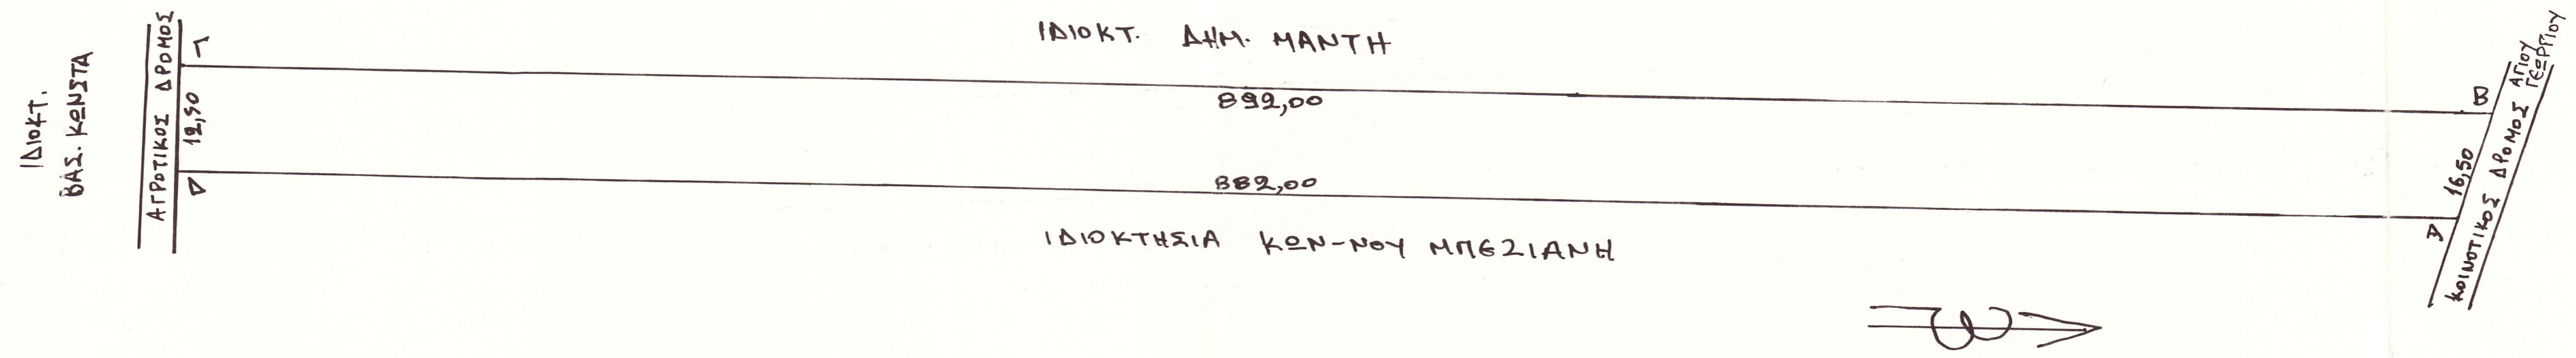 ΙΔΙΟΚΤ.
ΒΑΣ. ΚΩΝΣΤΑ
ΑΓΡΟΤΙΚΟΣ ΔΡΟΜΟΣ
Γ
12,50
Δ
ΙΔΙΟΚΤ. ΔΗΜ. ΜΑΝΤΗ
892,00
882,00
ΙΔΙΟΚΤΗΣΙΑ ΚΩΝ-ΝΟΥ ΜΠΕΖΙΑΝΗ
Β
16,50
Α
ΚΟΙΝΟΤΙΚΟΣ ΔΡΟΜΟΣ ΑΓΙΟΥ
ΓΕΩΡΓΙΟΥ